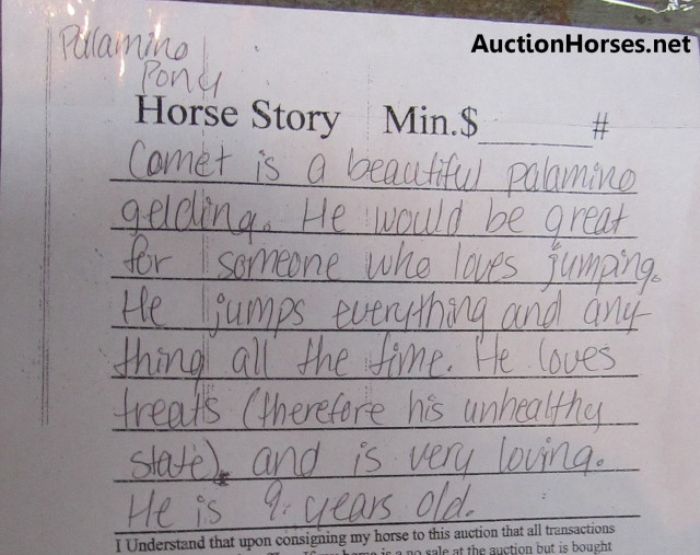 AuctionHorses.net
Palamino
Pony
Horse Story Min.$______#
Comet is a beautiful palamino
gelding. He would be great
for someone who loves jumping.
He jumps everything and any-
thing all the time. He loves
treats (therefore his unhealthy
state), and is very loving.
He is 9 years old.
I Understand that upon consigning my horse to this auction that all transactions
horse is a no sale at the auction but is bought